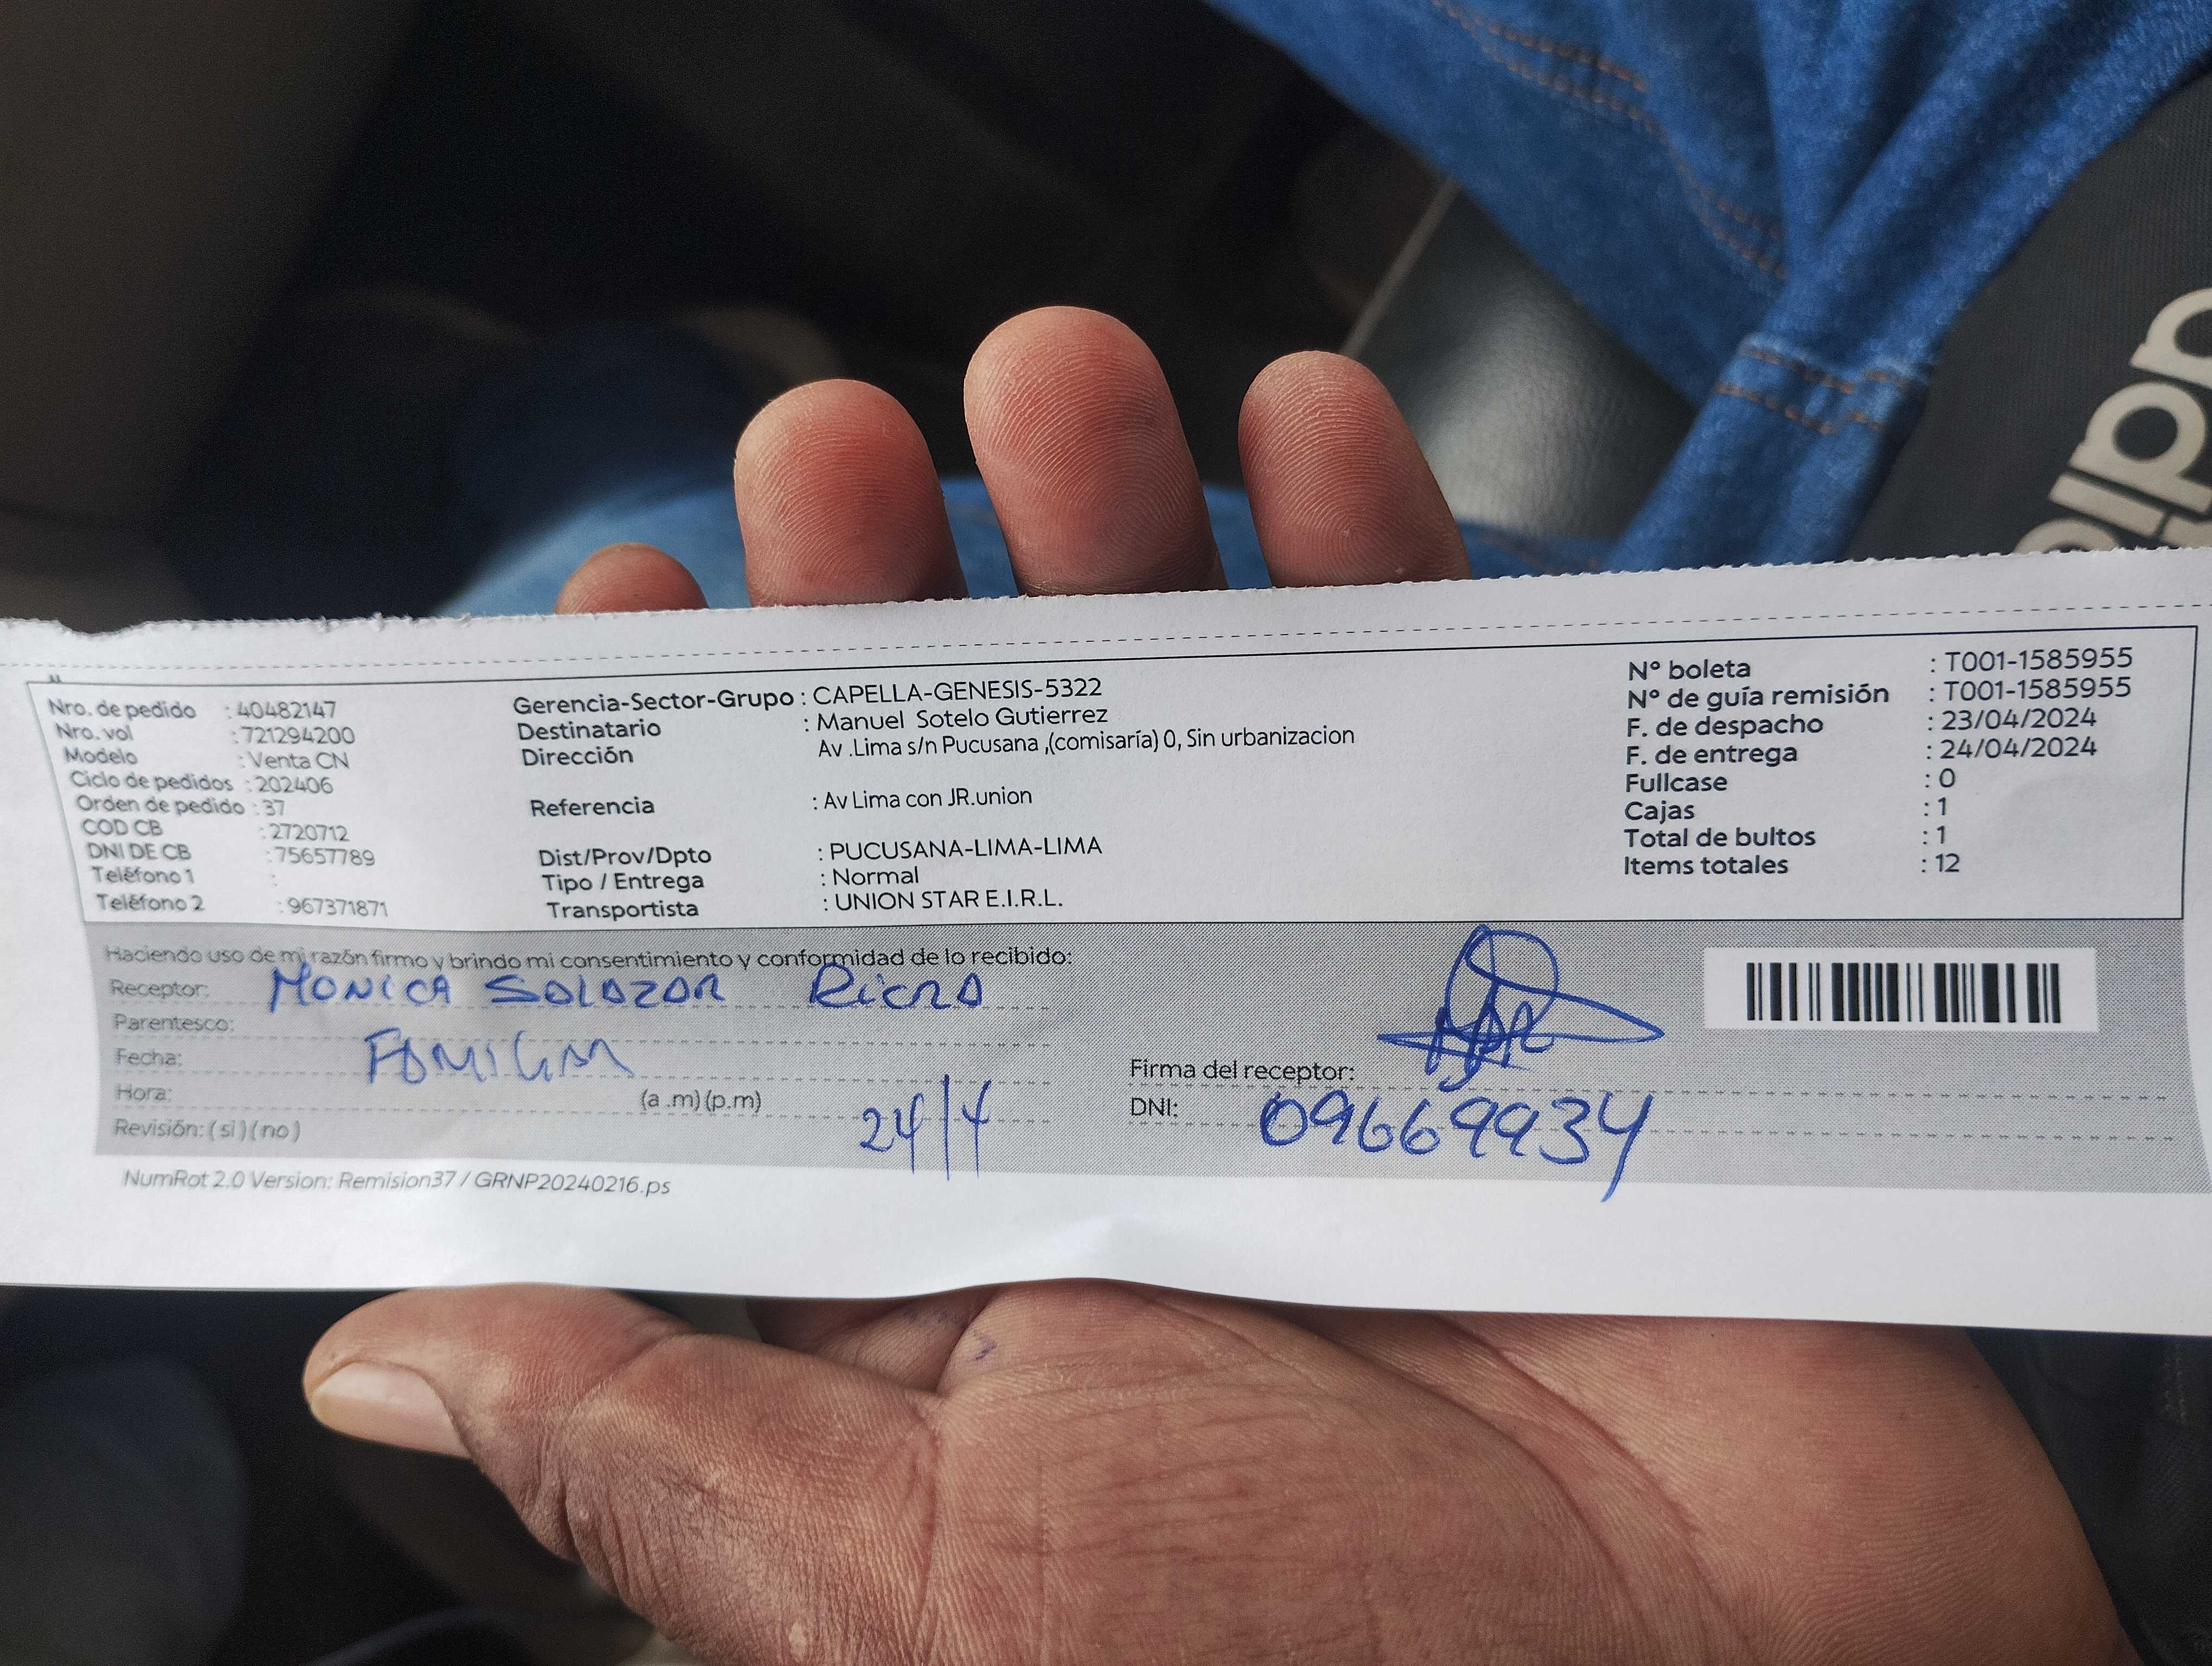 Nro. de pedido : 40482147
Nro. vol : 721294200
Modelo : Venta CN
Ciclo de pedidos : 202406
Orden de pedido : 37
COD CB : 2720712
DNI DE CB : 75657789
Teléfono 1 :
Teléfono 2 : 967371871
Gerencia-Sector-Grupo : CAPELLA-GENESIS-5322
Destinatario : Manuel Sotelo Gutierrez
Dirección Av .Lima s/n Pucusana ,(comisaría) 0, Sin urbanizacion
Referencia : Av Lima con JR.union
Dist/Prov/Dpto : PUCUSANA-LIMA-LIMA
Tipo / Entrega : Normal
Transportista : UNION STAR E.I.R.L.
N° boleta : T001-1585955
N° de guía remisión : T001-1585955
F. de despacho : 23/04/2024
F. de entrega : 24/04/2024
Fullcase : 0
Cajas : 1
Total de bultos : 1
Items totales : 12
Haciendo uso de mi razón firmo y brindo mi consentimiento y conformidad de lo recibido:
Receptor: MONICA SOLOZOR
Parentesco:
Fecha:
Hora: (a .m) (p.m) 24/4
Revisión: ( si ) ( no )
Firma del receptor:
DNI: 09669934
NumRot 2.0 Version: Remision37 / GRNP20240216.ps